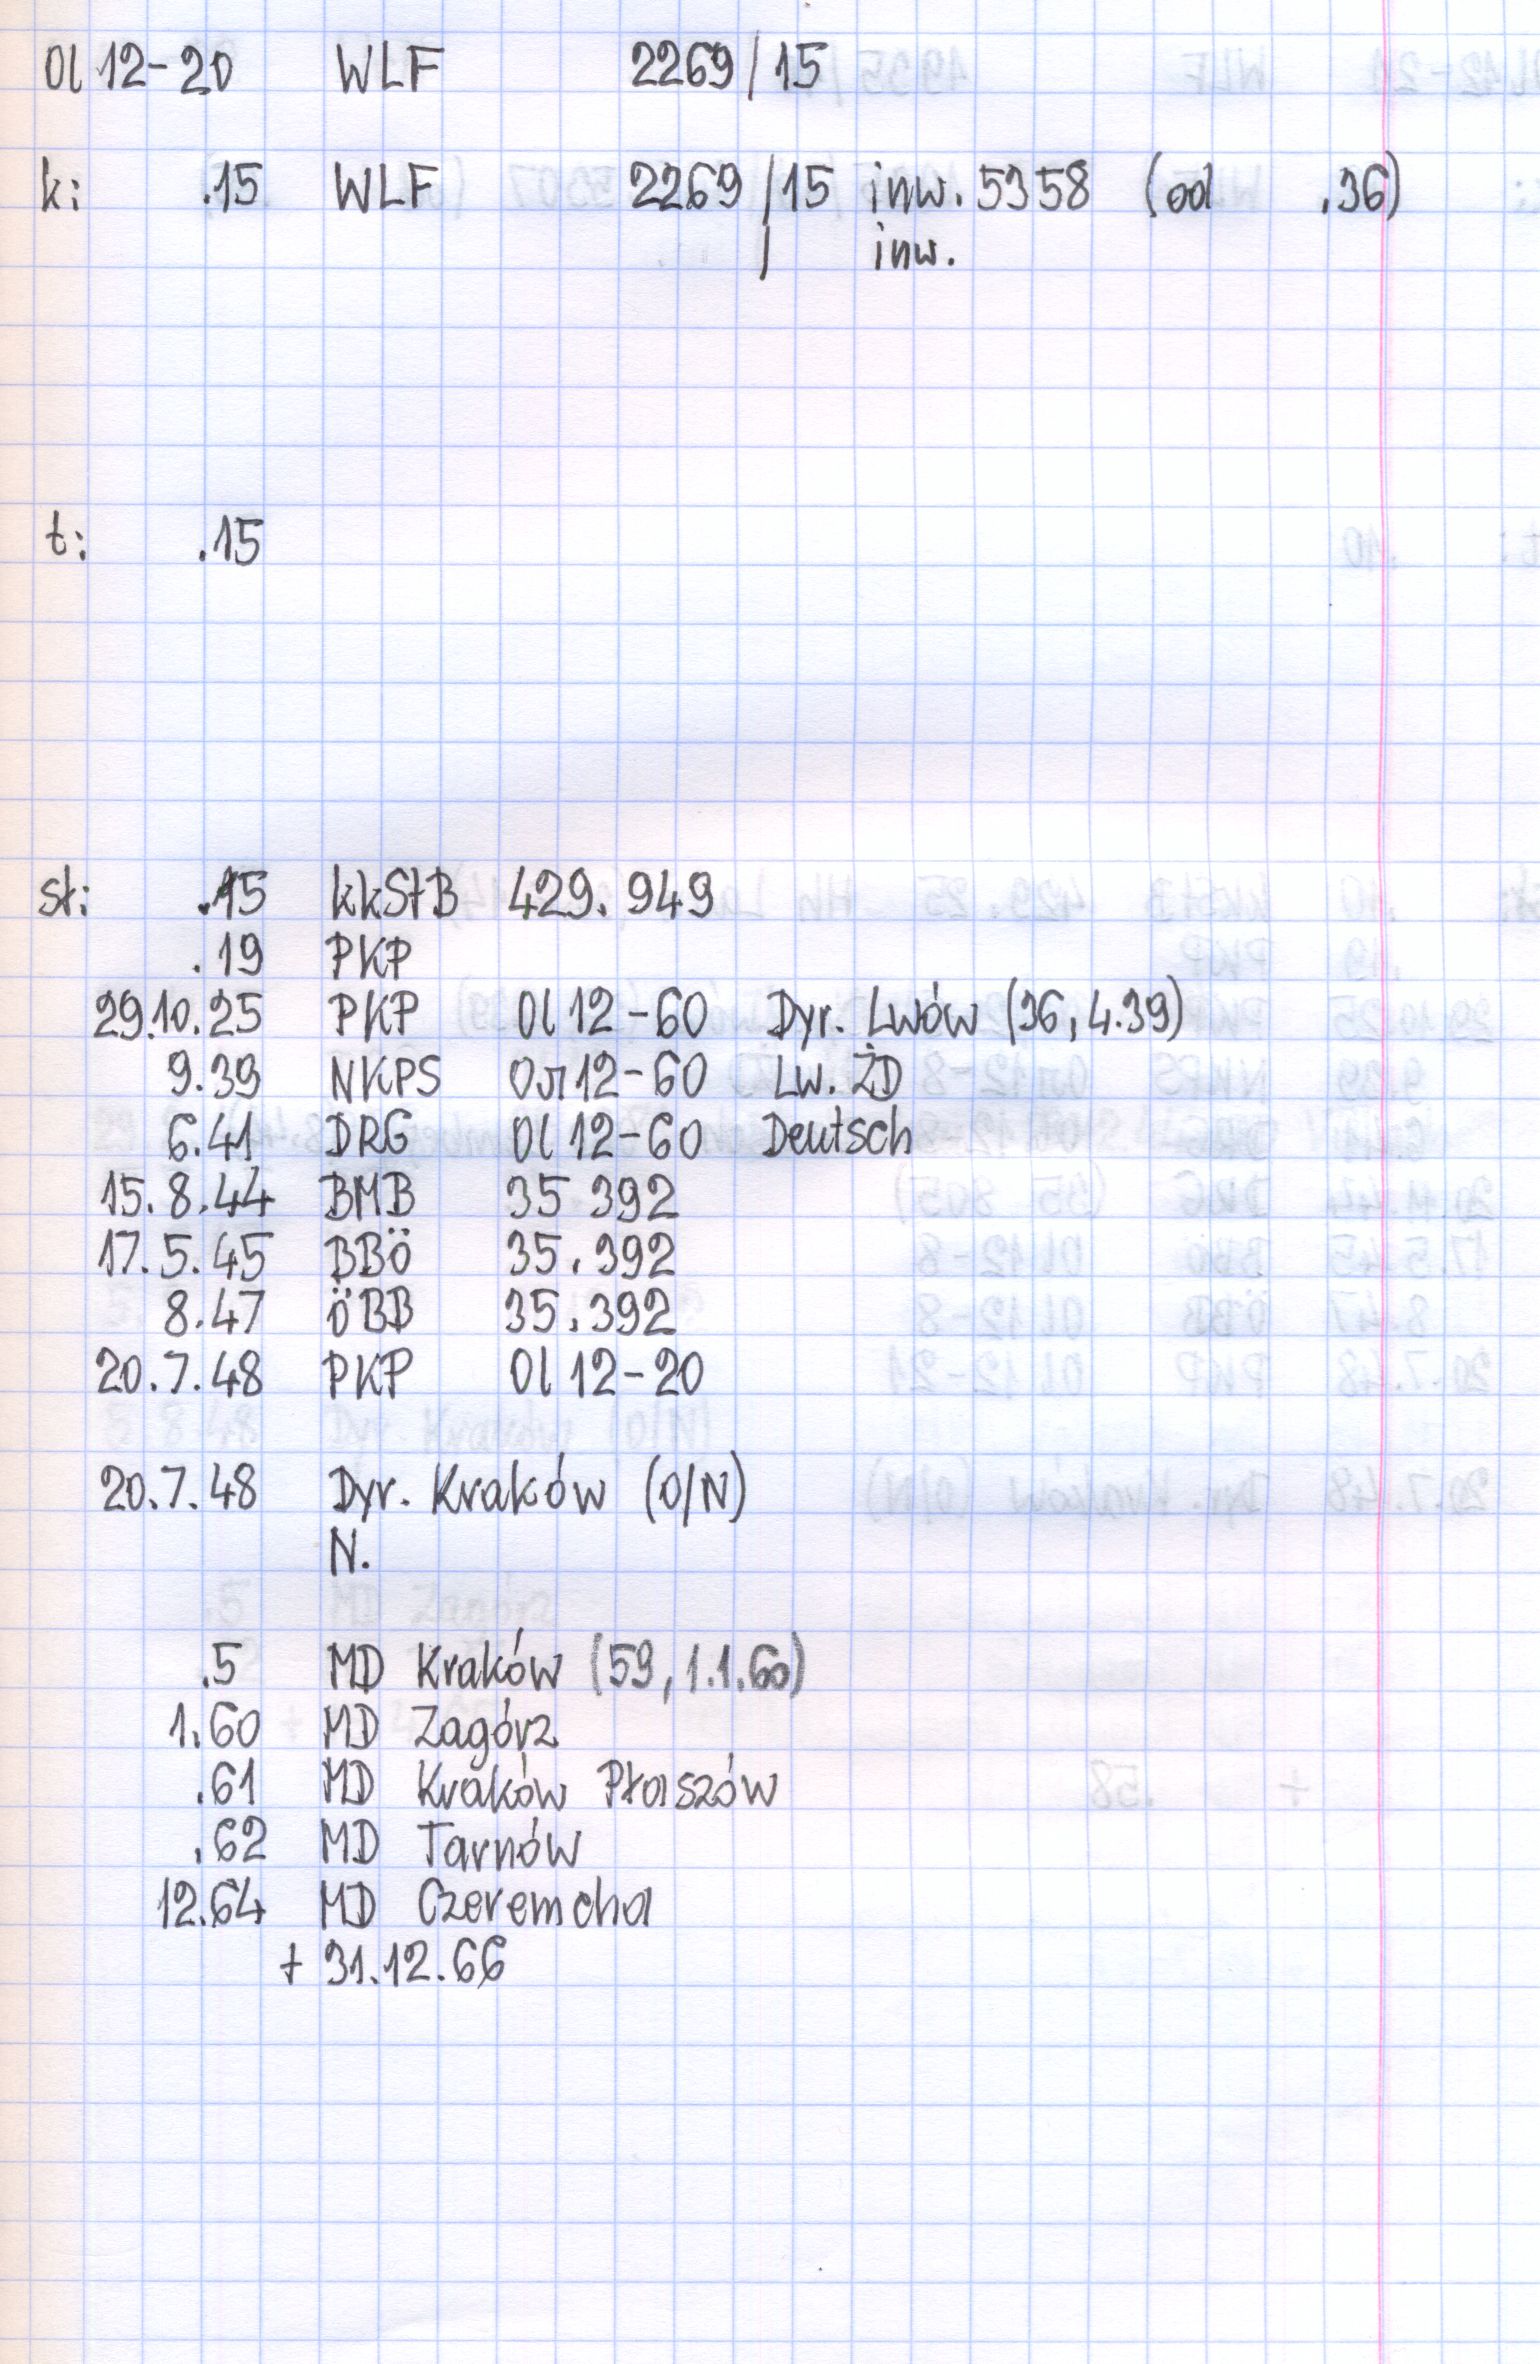 Ol 12-20 WLF 2269/15
k: .15 WLF 2269/15 inw. 5358 (od .36)
/ inw.
t: .15
st: .15 kkStB 429.949
.19 PKP
29.10.25 PKP Ol 12-60 Dyr. Lwów (36, 4.39)
9.39 NKPS Ол 12-60 Lw. ŻD
6.41 DRG Ol 12-60 Deutsch
15.8.44 BMB 35 392
17.5.45 BBÖ 35.392
8.47 ÖBB 35.392
20.7.48 PKP Ol 12-20
20.7.48 Dyr. Kraków (O/N)
N.
.5 MD Kraków (59, 1.1.60)
1.60 MD Zagórz
.61 MD Kraków Płaszów
.62 MD Tarnów
12.64 MD Czeremcha
+ 31.12.66